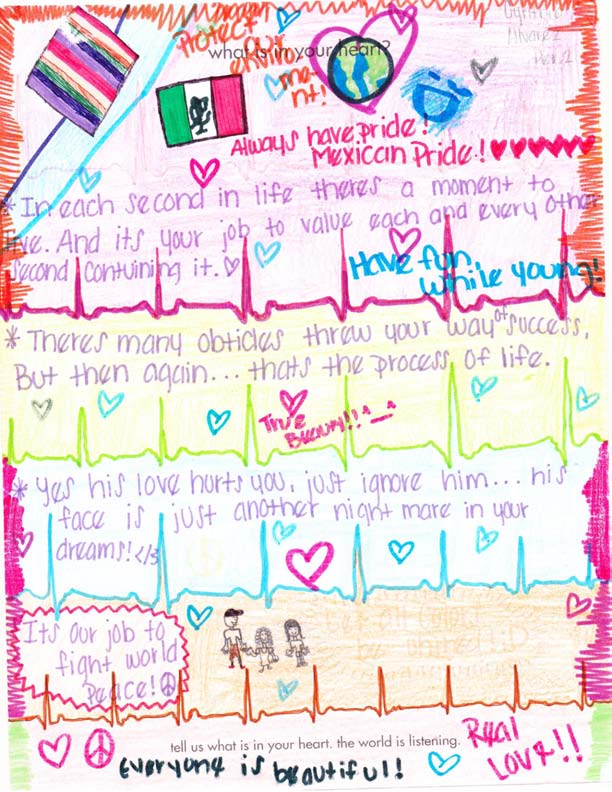 Protect
what is in your heart?
enviro
ment!
Alvarez
Always have pride!
Mexican Pride!
*In each second in life theres a moment to
live. And its your job to value each and every other
second contuining it.
Have fun
while young!
* Theres many obticles threw your way of success,
But then again... thats the process of life.
True
Beauty!! ^_^
* Yes his love hurts you, just ignore him... his
face is just another night mare in your
dreams! </3
Its our job to
fight world
Peace!
tell us what is in your heart. the world is listening.
Real
Love!!
Everyone is beautiful!